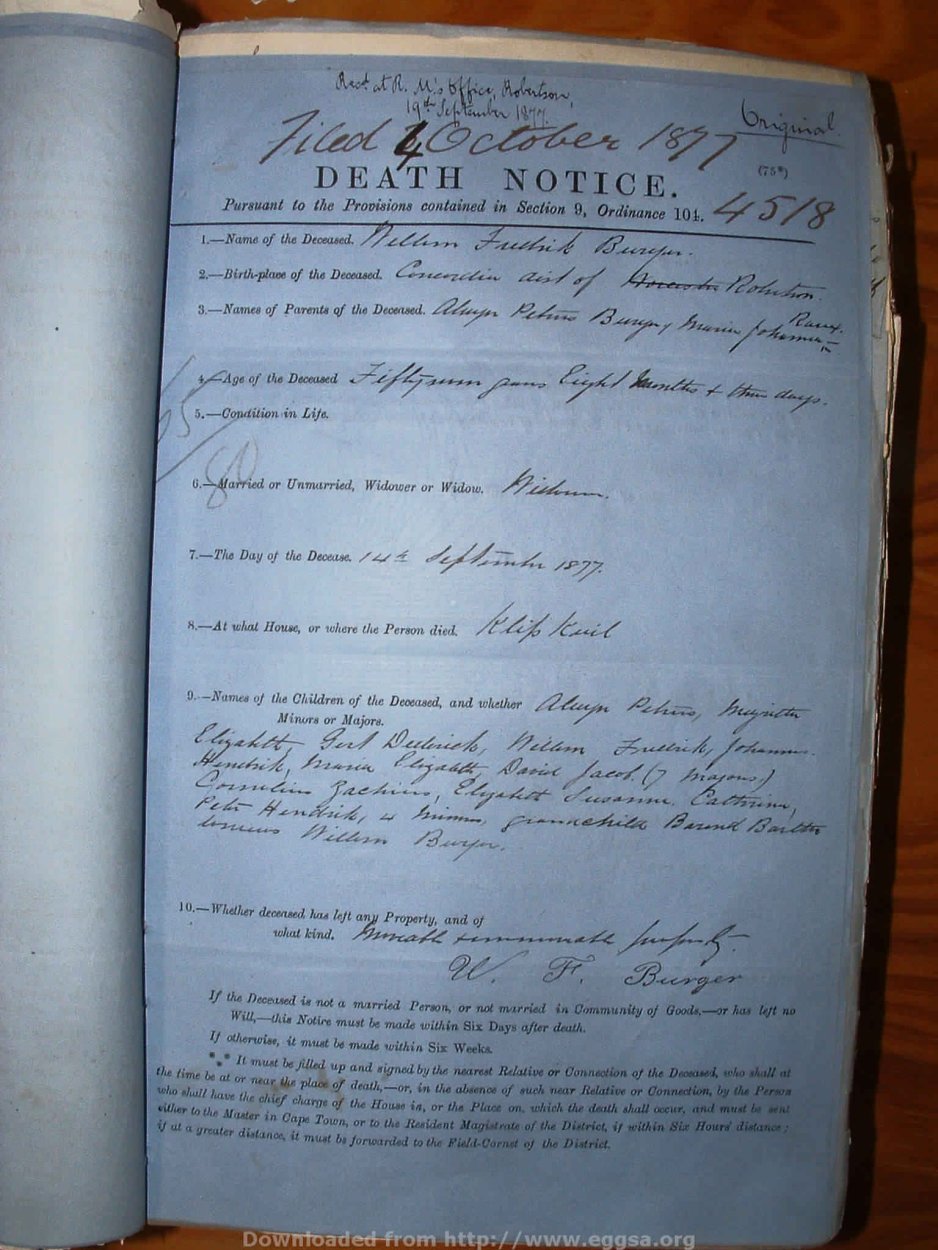 Recd at R. M's Office, Robertson,
19th September 1877.
Original
Filed 4 October 1877
(75*)
DEATH NOTICE.
Pursuant to the Provisions contained in Section 9, Ordinance 104. 4518
1.—Name of the Deceased. Willem Fredrik Burger.
2.—Birth-place of the Deceased. Concordia dist of Worcester Robertson.
3.—Names of Parents of the Deceased. Alwyn Petrus Burger & Maria Johanna
4.—Age of the Deceased Fiftyseven years Eight Months & three days.
5.—Condition in Life.
80
6.—Married or Unmarried, Widower or Widow. Widower.
7.—The Day of the Decease. 14th September 1877.
8.—At what House, or where the Person died. Klip Kuil
9.—Names of the Children of the Deceased, and whether Alwyn Petrus,
Minors or Majors.
Elizabeth, Gert Diederick, Willem Fredrik, Johannes
Hendrik, Maria Elizabeth, David Jacob. (7 Majors.)
Cornelius Zachius, Elizabeth Susanna, Cathrina,
Petr Hendrik, 4 Minors, grandchild Barend Bartho
lomeus Willem Burger.
10.—Whether deceased has left any Property, and of
what kind. Moveable & immoveable property.
W. F. Burger
If the Deceased is not a married Person, or not married in Community of Goods,—or has left no
Will,—this Notice must be made within Six Days after death.
If otherwise, it must be made within Six Weeks.
*.* It must be filled up and signed by the nearest Relative or Connection of the Deceased, who shall at
the time be at or near the place of death,—or, in the absence of such near Relative or Connection, by the Person
who shall have the chief charge of the House in, or the Place on, which the death shall occur, and must be sent
either to the Master in Cape Town, or to the Resident Magistrate of the District, if within Six Hours' distance;
if at a greater distance, it must be forwarded to the Field-Cornet of the District.
Downloaded from http://www.eggsa.org